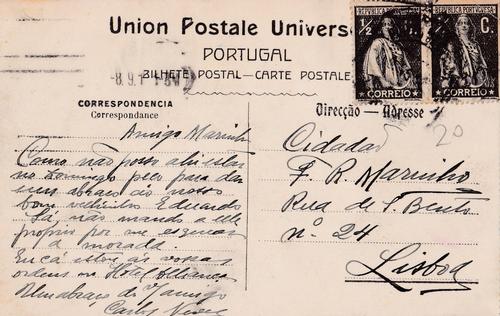 Union Postale Univers
PORTUGAL
BILHETE POSTAL—CARTE POSTALE
REPUBLICA PORTUGUESA
½ C.
CORREIO
REPUBLICA PORTUGUESA
C.
CORREIO
-8.9.1
CORRESPONDENCIA
Correspondance
Direcção — Adresse
20
Amigo Marinho
Como não posso
no Domingo peço para dar
um abraço ao nosso
bom Eduardo
Já não mando a elle
proprio por me esquecer
a morada.
Em cá estou ás vossas
ordens no Hotel Alliança
Um abraço do amigo
Carlos
Cidadão
F. R. Marinho
Rua de S. Bento
nº 24
Lisboa